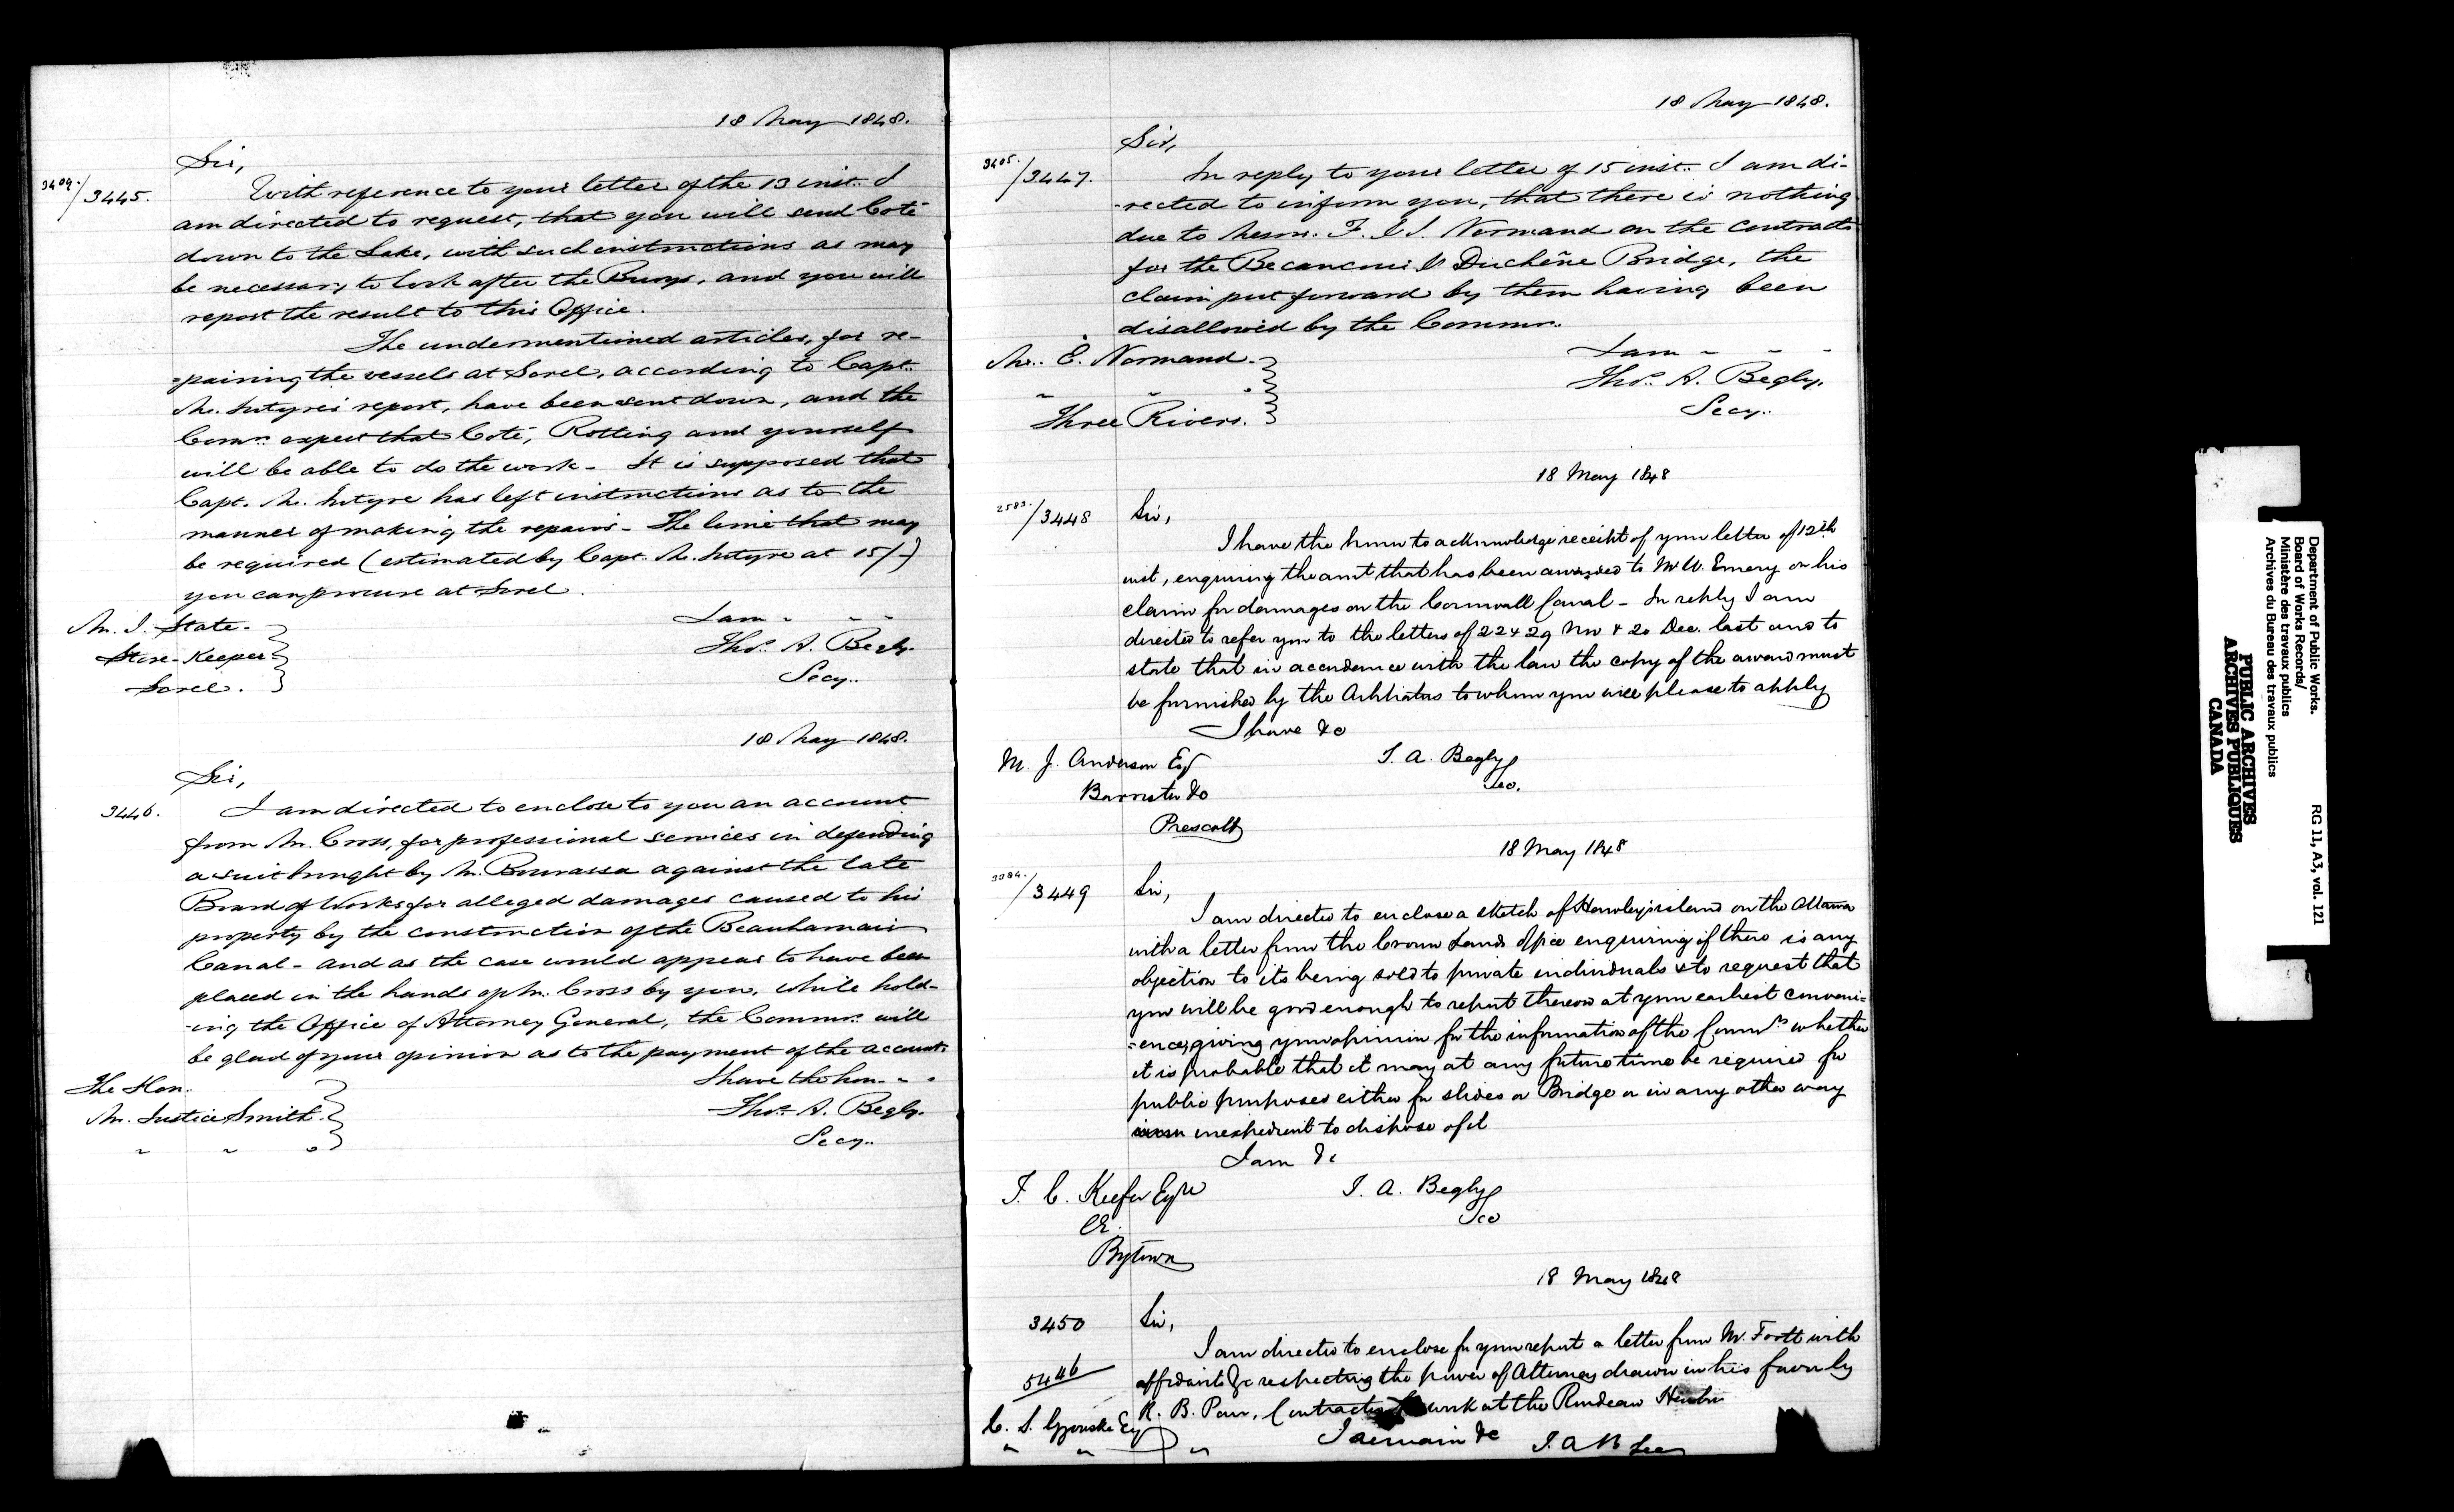 18 May 1848.
Sir,
3409./3445.
With reference to your letter of the 13 inst. I
am directed to request, that you will send Coté
down to the Lake, with such instructions as may
be necessary to look after the Buoys, and you will
report the result to this Office.
The undermentioned articles, for re-
=pairing the vessels at Sorel, according to Capt.
Mc. Intyre's report, have been sent down, and the
Comrs. expect that Coté, Rotting and yourself
will be able to do the work - It is supposed that
Capt. Mc. Intyre has left instructions as to the
manner of making the repairs - The lime that may
be required (estimated by Capt. Mc. Intyre at 15/-)
you can procure at Sorel.
I am - - -
Mr. J. State.
Thos. A. Begly.
Store-Keeper
Secy..
Sorel.
18 May 1848.
Sir,
3446.
I am directed to enclose to you an account
from Mr. Cross, for professional services in defending
a suit brought by Mr. Bourassa against the late
Board of Works for alleged damages caused to his
property by the construction of the Beauharnais
Canal - and as the case would appear to have been
placed in the hands of Mr. Cross by you, while hold-
-ing the Office of Attorney General, the Commrs. will
be glad of your opinion as to the payment of the account.
The Hon.
I have the hon. - -
Mr. Justice Smith.
Thos. A. Begly.
Secy..
18 May 1848.
Sir,
3405./3447.
In reply to your letter of 15 inst. I am di-
-rected to inform you, that there is nothing
due to Messrs. F. & J. Normand on the contracts
for the Becancour & Duchêne Bridge, the
claim put forward by them having been
disallowed by the Commrs.
I am - - -
Mr. E. Normand.
Thos. A. Begly.
Secy..
Three Rivers.
18 May 1848
2583./3448
Sir,
I have the honor to acknowledge receipt of your letter of 12th
inst, enquiring the amt that has been awarded to Mr W. Emery on his
claim for damages on the Cornwall Canal - In reply I am
directed to refer you to the letters of 22 & 29 Nov & 20 Dec. last and to
state that in accordance with the law the copy of the award must
be furnished by the Arbitrators to whom you will please to apply
I have &c
M. J. Anderson Esq
T. A. Begly
Barrister &c
Sec.
Prescott
18 May 1848
3384./3449
Sir,
I am directed to enclose a sketch of Hawley island on the Ottawa
with a letter from the Crown Lands Office enquiring if there is any
objection to its being sold to private individuals & to request that
you will be good enough to report thereon at your earliest conveni=
=ence, giving your opinion for the information of the Commrs whether
it is probable that it may at any future time be required for
public purposes either for slides or Bridge or in any other way
inexpedient to dispose of it
I am &c
T. C. Keefer Esqre
T. A. Begly
CE.
Sec
Bytown
18 May 1848
3450
Sir,
I am directed to enclose for your report a letter from Mr. Foott with
5446
affidavit &c respecting the power of Attorney drawn in his favor by
R. B. Contractor work at the Rondeau Harbor
C. S. Gzowski Esq
I remain &c
T. A B Sec
Department of Public Works.
Board of Works Records/
Ministère des travaux publics
Archives du Bureau des travaux publics
RG 11, A3, vol. 121
PUBLIC ARCHIVES
ARCHIVES PUBLIQUES
CANADA